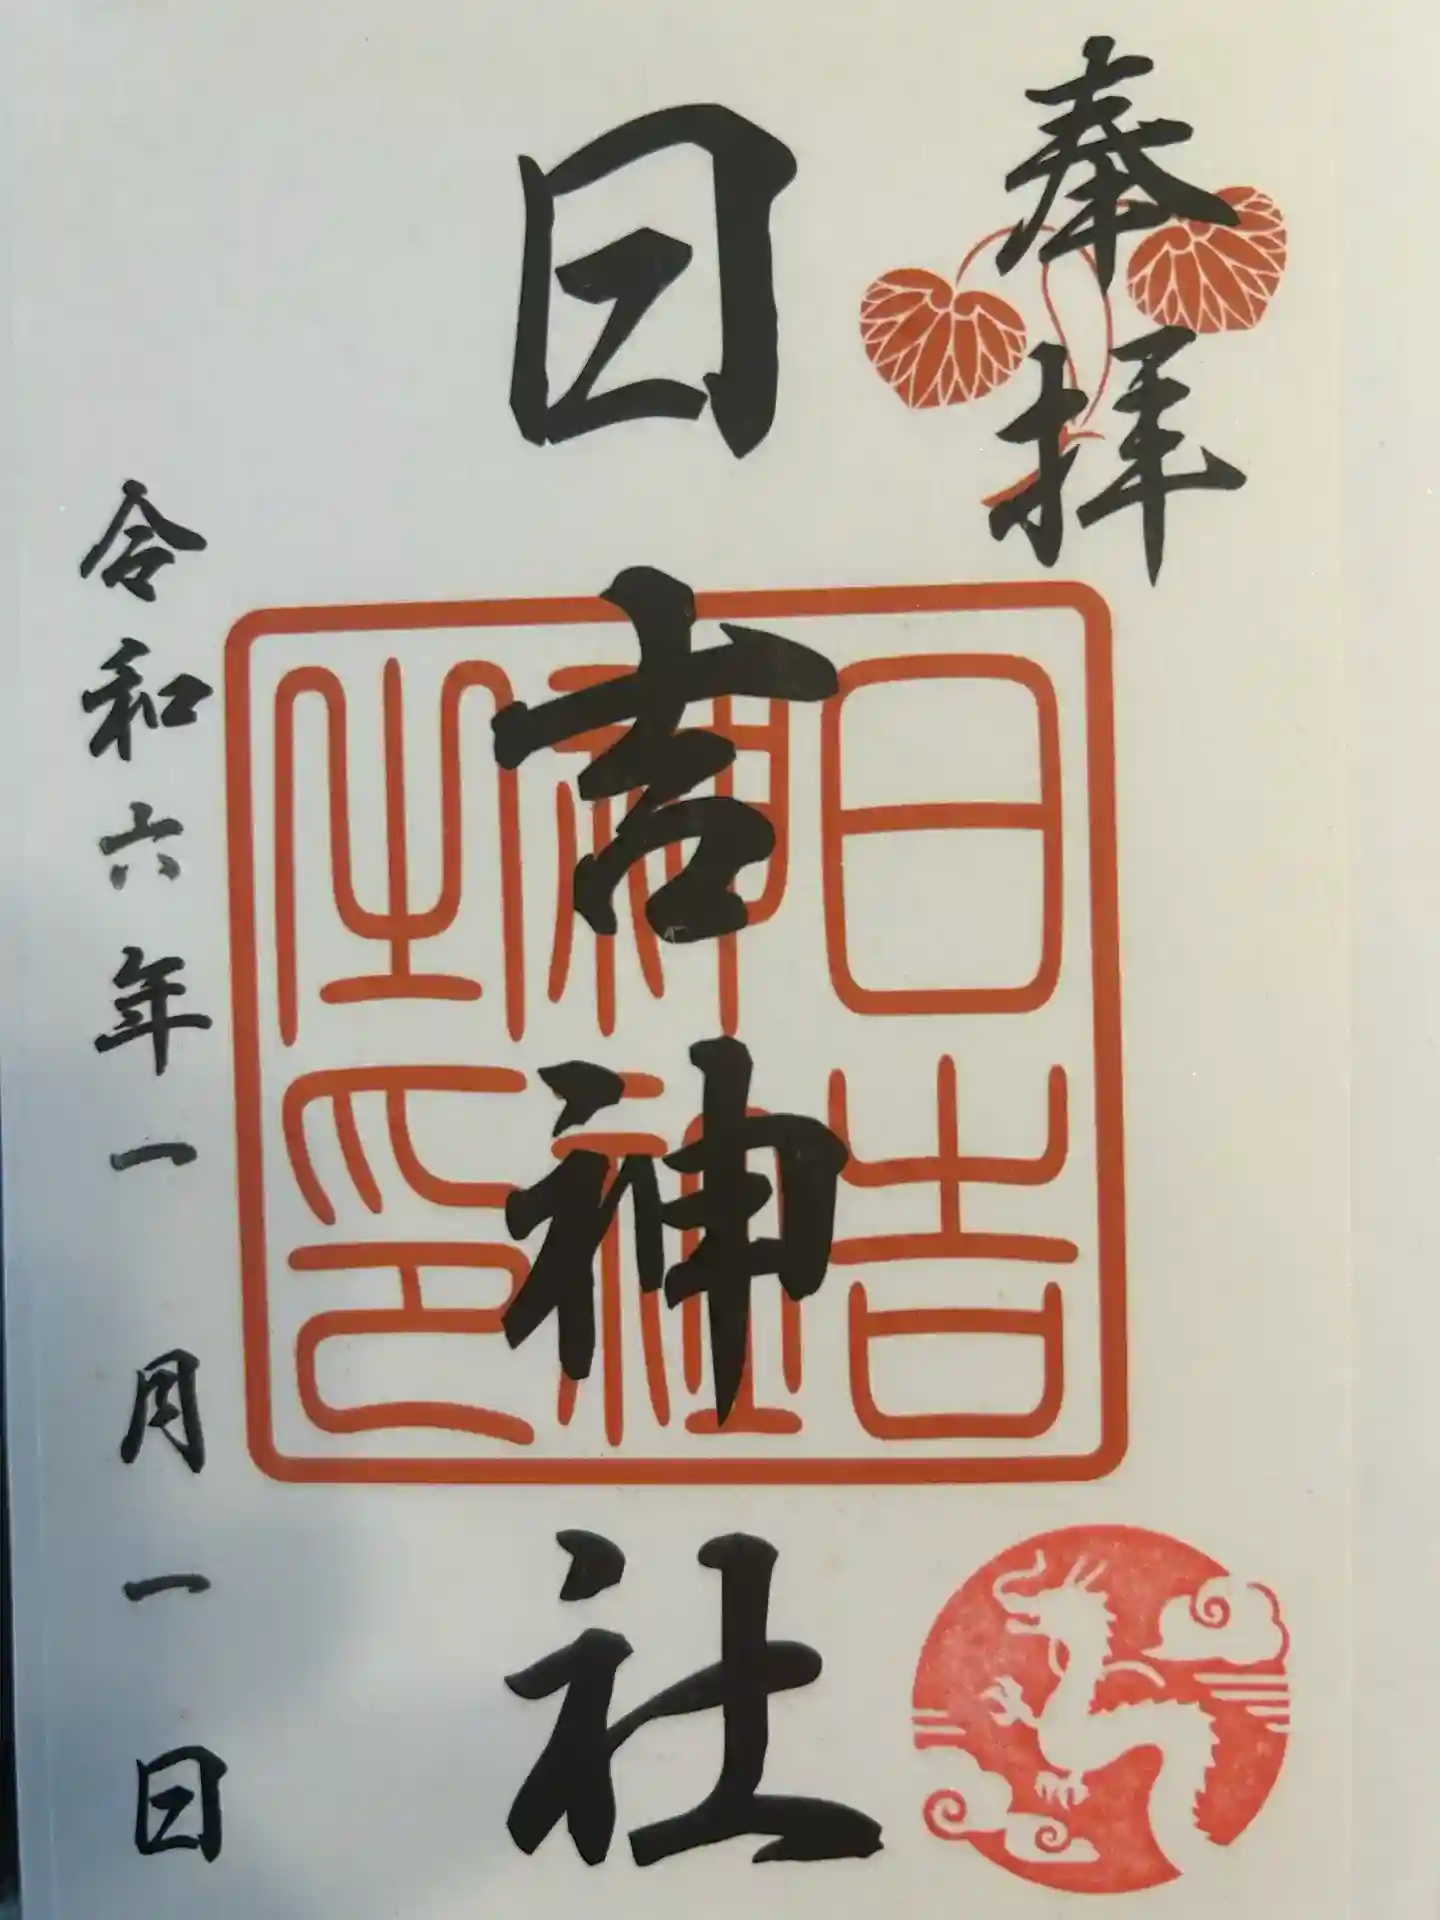 奉拝
日吉神社
日吉
神社
之印
令和六年一月一日